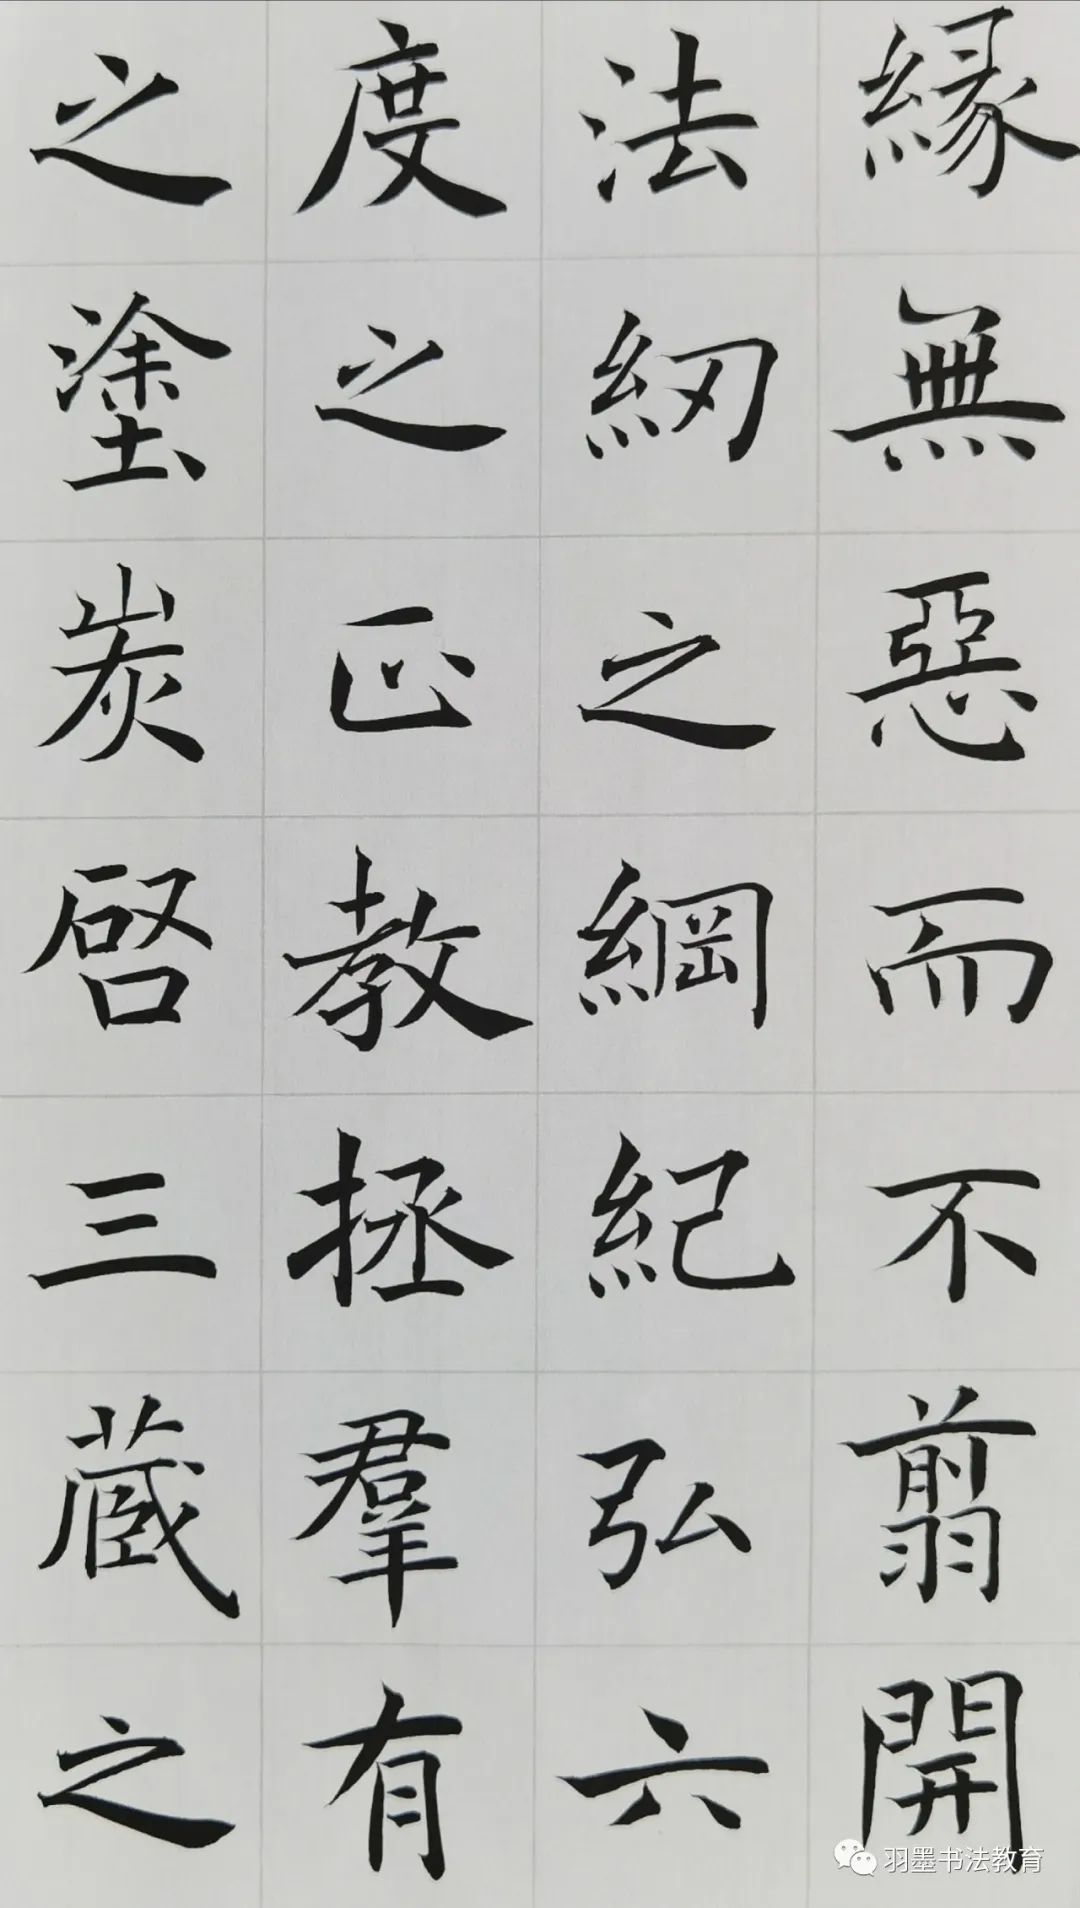 緣無惡而不翦開
法紉之綱紀弘六
度之正教拯羣有
之塗炭啓三藏之
羽墨书法教育